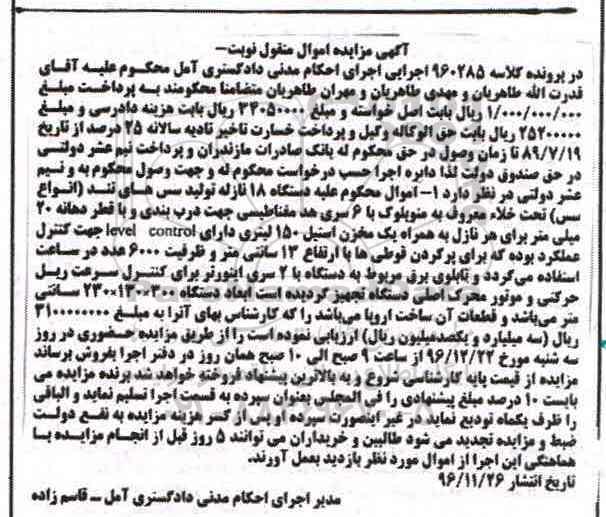 آگهی مزایده اموال منقول نوبت-
در پرونده کلاسه ۹۶۰۲۸۵ اجرایی اجرای احکام مدنی دادگستری آمل محکوم علیه آقای
قدرت الله طاهریان و مهدی طاهریان و مهران طاهریان متضامنا محکومند به پرداخت مبلغ
۱/۰۰۰/۰۰۰/۰۰۰ ریال بابت اصل خواسته و مبلغ ۳۴۰۵۰۰۰۰ ریال بابت هزینه دادرسی و مبلغ
۲۵۲۰۰۰۰۰ ریال بابت حق الوکاله وکیل و پرداخت خسارت تاخیر تادیه سالانه ۲۵ درصد از تاریخ
۸۹/۷/۱۹ تا زمان وصول در حق محکوم له بانک صادرات مازندران و پرداخت نیم عشر دولتی
در حق صندوق دولت لذا دایره اجرا حسب درخواست محکوم له و جهت وصول محکوم به و نیم
عشر دولتی در نظر دارد ۱- اموال محکوم علیه دستگاه ۱۸ نازله تولید سس های تند (انواع
سس) تحت خلاء معروف به منوبلوک با ۶ سری هد مغناطیسی جهت درب بندی و با قطر دهانه ۲۰
میلی متر برای هر نازل به همراه یک مخزن استیل ۱۵۰ لیتری دارای level control جهت کنترل
عملکرد بوده که برای پرکردن قوطی ها با ارتفاع ۱۳ سانتی متر و ظرفیت ۶۰۰۰ عدد در ساعت
استفاده می‌گردد و تابلوی برق مربوط به دستگاه با ۲ سری اینورتر برای کنترل سرعت ریل
حرکتی و موتور محرک اصلی دستگاه تجهیز گردیده است ابعاد دستگاه ۳۰۰×۱۳۰×۲۳۰ سانتی
متر می‌باشد و قطعات آن ساخت اروپا می‌باشد را که کارشناسی بهای آنرا به مبلغ ۳۱۰۰۰۰۰۰۰۰
ریال (سه میلیارد و یکصدمیلیون ریال) ارزیابی نموده است را از طریق مزایده حضوری در روز
سه شنبه مورخ ۹۶/۱۲/۲۲ از ساعت ۹ صبح الی ۱۰ صبح همان روز در دفتر اجرا بفروش برساند
مزایده از قیمت پایه کارشناسی شروع و به بالاترین پیشنهاد فروخته خواهد شد برنده مزایده می
بایست ۱۰ درصد مبلغ پیشنهادی را فی المجلس بعنوان سپرده به قسمت اجرا تسلیم نماید و الباقی
را ظرف یکماه تودیع نماید در غیر اینصورت سپرده او پس از کسر هزینه مزایده به نفع دولت
ضبط و مزایده تجدید می شود طالبین و خریداران می توانند ۵ روز قبل از انجام مزایده با
هماهنگی این اجرا از اموال مورد نظر بازدید بعمل آورند.
تاریخ انتشار ۹۶/۱۱/۲۶
مدیر اجرای احکام مدنی دادگستری آمل - قاسم زاده